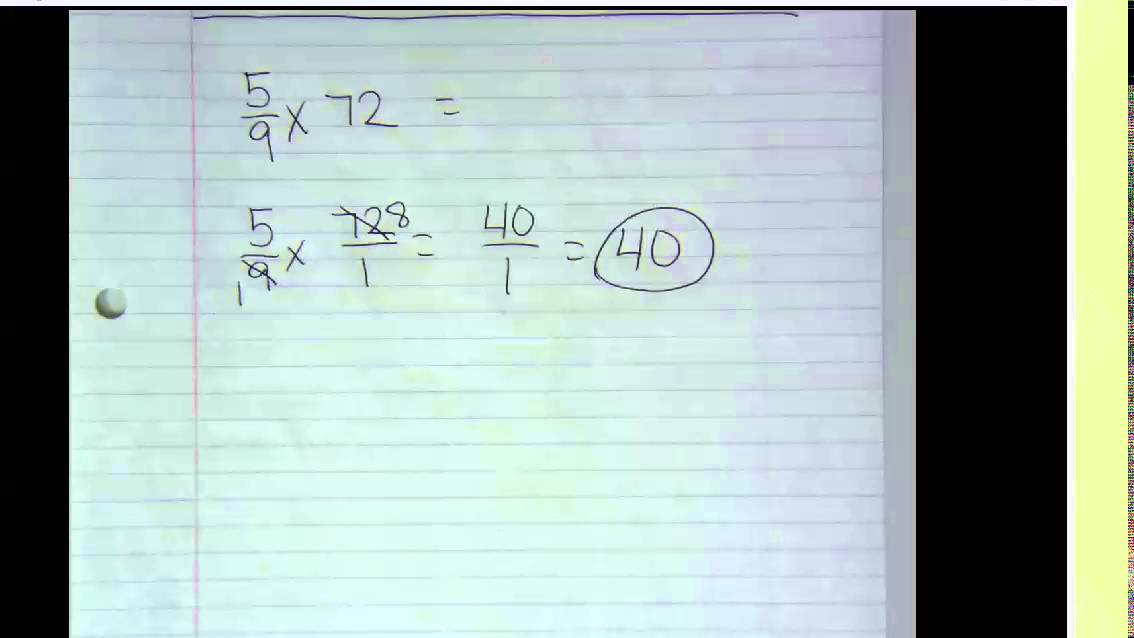 5/9 x 72 =
5/9 1 x 72 8/1 = 40/1 = 40